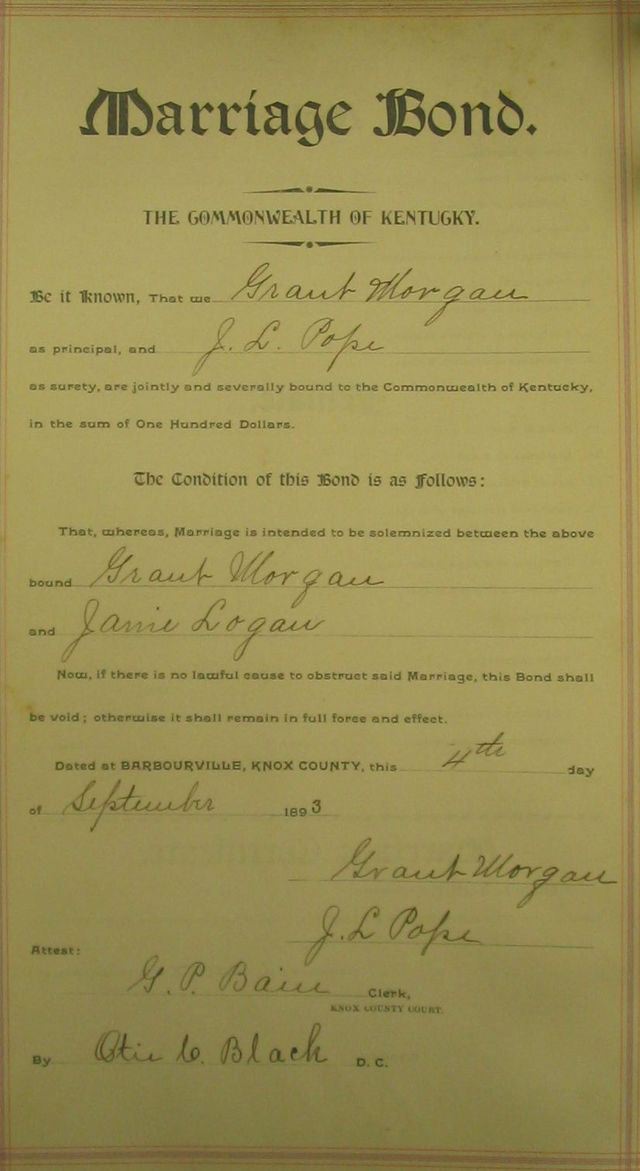 Marriage Bond.
THE COMMONWEALTH OF KENTUCKY.
Be it Known, That we Grant Morgan
as principal, and J. L. Pope
as surety, are jointly and severally bound to the Commonwealth of Kentucky,
in the sum of One Hundred Dollars.
The Condition of this Bond is as Follows:
That, whereas, Marriage is intended to be solemnized between the above
bound Grant Morgan
and Janie Logan
Now, if there is no lawful cause to obstruct said Marriage, this Bond shall
be void; otherwise it shall remain in full force and effect.
Dated at BARBOURVILLE, KNOX COUNTY, this 4th day
of September 1893
Grant Morgan
J. L Pope
Attest:
G. P. Bain Clerk,
KNOX COUNTY COURT.
By Black D. C.